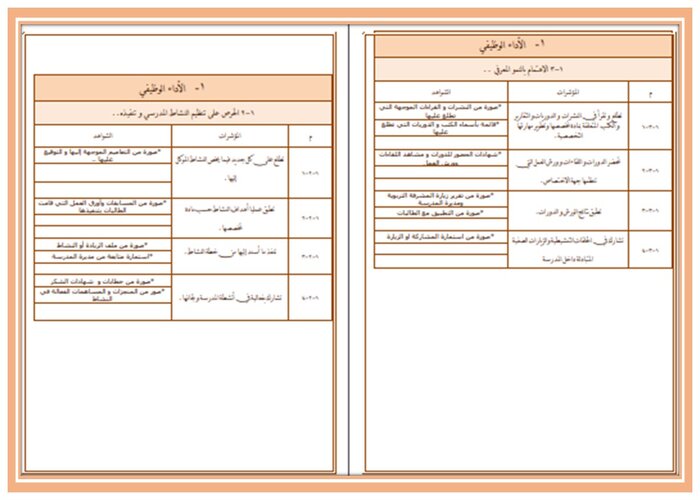 ١- الأداء الوظيفي
١-٣ الاهتمام بالنمو المعرفي . .
م المؤشرات الشواهد
١-٣-١
تطلع وتقرأ في النشرات و الدوريات و التقارير
والكتب المتعلقة بمادة تخصصها وتطوير مهاراتها
التخصصية .
*صورة من النشرات و القراءات الموجهة التي
تطلع عليها
*قائمة بأسماء الكتب و الدوريات التي تطلع
عليها
١-٣-٢
تحضر الدورات و اللقاءات وورش العمل التي
تنظمها جهة الاختصاص .
*شهادات الحضور للدورات و مشاهد اللقاءات
وورش العمل
١-٣-٣
تطبق نتائج الورش و الدورات .
*صورة من تقرير زيارة المشرفة التربوية
ومديرة المدرسة
*صورة من التطبيق مع الطالبات
١-٣-٤
تشارك في الحلقات التنشيطية والزيارات الصفية
المتبادلة داخل المدرسة
*صورة من استمارة المشاركة أو الزيارة
١- الأداء الوظيفي
١-٢ الحرص على تنظيم النشاط المدرسي و تنفيذه . .
م المؤشرات الشواهد
١-٢-١
تطلع على كل جديد فيما يخص النشاط الموكل
إليها .
*صورة من التعاميم الموجهة إليها و التوقيع
عليها ..
١-٢-٢
تطبق عمليا أهداف النشاط حسب مادة
تخصصها .
*صورة من المسابقات وأوراق العمل التي قامت
الطالبات بتنفيذها
١-٢-٣
تنفذ ما أسند إليها من خطة النشاط .
*صورة من ملف الريادة أو النشاط
*استمارة متابعة من مديرة المدرسة
١-٢-٤
تشارك بفعالية في أنشطة المدرسة ولجانها .
*صورة من خطابات و شهادات الشكر
*صور من المنجزات و المساهمات الفعالة في
النشاط